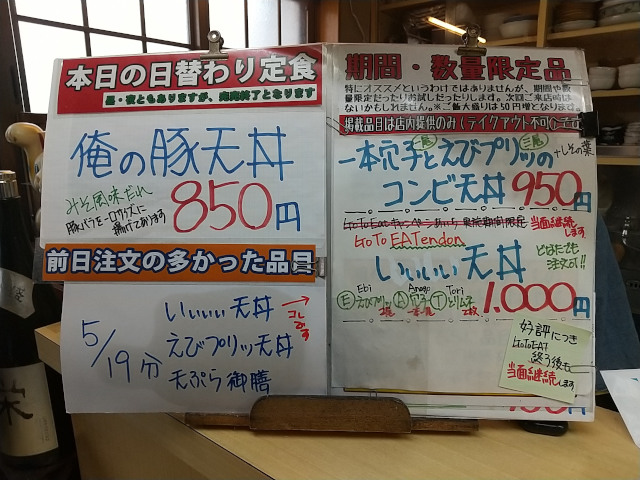 本日の日替わり定食
昼・夜ともありますが、完売終了となります
俺の豚天丼
みそ風味だれ
豚バラをロウサイズに
揚げてあります
850円
前日注文の多かった品
5/19分
いぃぃぃ天丼
→コレです
えびプリッ天丼
天ぷら御膳
期間・数量限定品
特にオススメというわけではありませんが、期間や数
量限定だったりお試しだったりします。次回ご来店時は
ないかもしれません。※ご飯大盛りは50円増となります。
掲載品目は店内提供のみ(テイクアウト不可)です
一本穴子とえびプリッの
二尾
+しその葉
コンビ天丼 950円
当面継続します
GoTo EATendon
いぃぃぃ天丼
どなたでも
注文可!!
Ebi Anago Tori
Ⓔえびプリッ Ⓐ穴子 Ⓣとりムネ
2尾 一本 2枚
1,000円
好評につき
GoToEAT
終了後も
当面継続します
栄